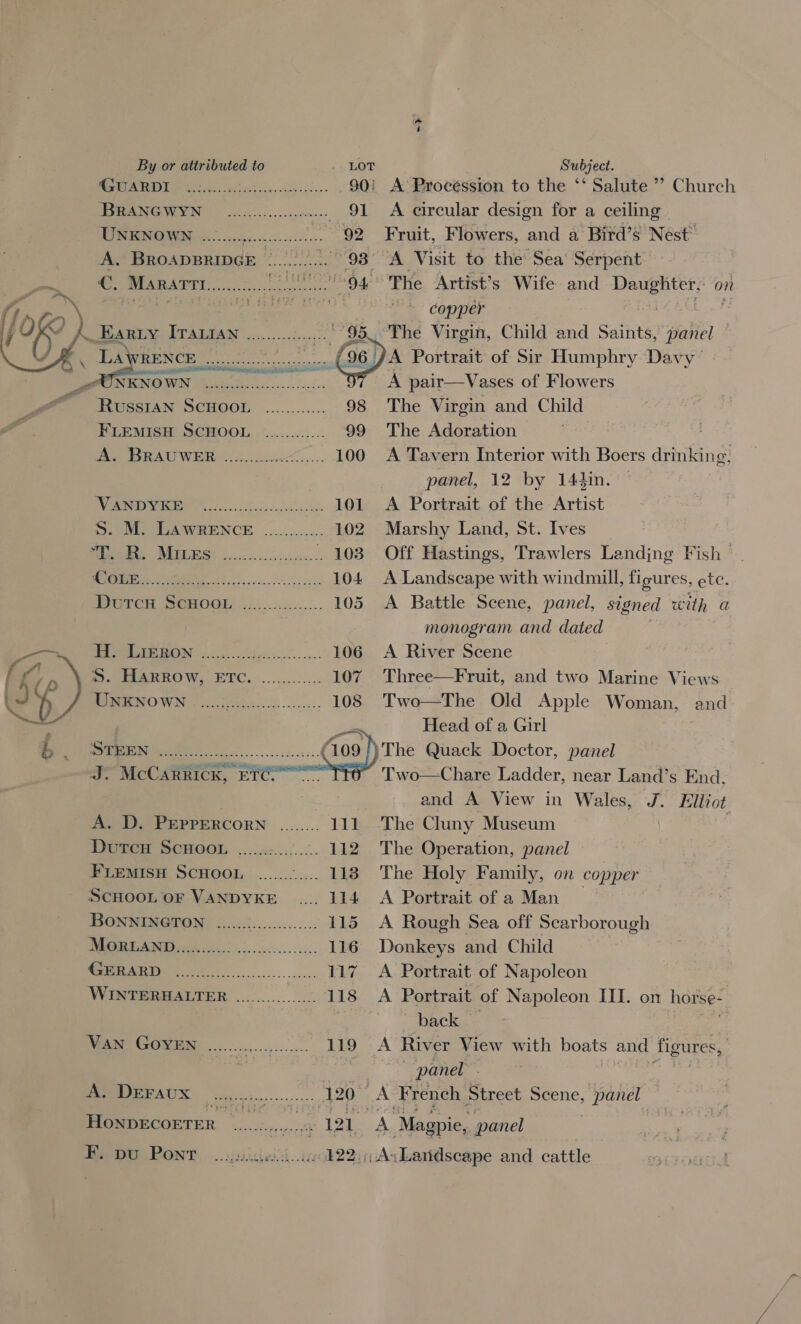 By or attributed to LOT Subject.
GUARDI ............ 90 A Procession to the “Salute” Church
BRANGWYN ............ 91 A circular design for a ceiling
UNKNOWN ............ 92 Fruit, Flowers, and a Bird’s Nest
A. BROADBRIDGE ............ 93 A Visit to the Sea Serpent
C. MARATTI ............ 94 The Artist’s Wife and Daughter, on
copper
EARLY ITALIAN ............ 95 The Virgin, Child and Saints, panel
LAWRENCE ............ 96 A Portrait of Sir Humphry Davy
UNKNOWN ............ 97 A pair—Vases of Flowers
RUSSIAN SCHOOL ............ 98 The Virgin and Child
FLEMISH SCHOOL ............ 99 The Adoration
A. BRAUWER ............ 100 A Tavern Interior with Boers drinking,
panel, 12 by 14½in.
VANDYKE ............ 101 A Portrait of the Artist
S. M. LAWRENCE ............ 102 Marshy Land, St. Ives
T. R. MILES ............ 103 Off Hastings, Trawlers Landing Fish
COLE ............ 104 A Landscape with windmill, figures, etc.
DUTCH SCHOOL ............ 105 A Battle Scene, panel, signed with a
monogram and dated
H. LIERON ............ 106 A River Scene
S. HARROW, ETC. ............ 107 Three—Fruit, and two Marine Views
UNKNOWN ............ 108 Two—The Old Apple Woman, and
Head of a Girl
STEEN ............ 109 The Quack Doctor, panel
J. MCCARRICK, ETC. .... 110 Two—Chare Ladder, near Land’s End,
and A View in Wales, J. Elliot
A. D. PEPPERCORN ........ 111 The Cluny Museum
DUTCH SCHOOL ............ 112 The Operation, panel
FLEMISH SCHOOL ............ 113 The Holy Family, on copper
SCHOOL OF VANDYKE .... 114 A Portrait of a Man
BONNINGTON ............ 115 A Rough Sea off Scarborough
MORLAND ............ 116 Donkeys and Child
GERARD ............ 117 A Portrait of Napoleon
WINTERHALTER ............ 118 A Portrait of Napoleon III. on horse-
back
VAN GOYEN ............ 119 A River View with boats and figures,
panel
A. DEFAUX ............ 120 A French Street Scene, panel
HONDECOETER ............ 121 A Magpie, panel
F. DU PONT ............ 122 A Landscape and cattle